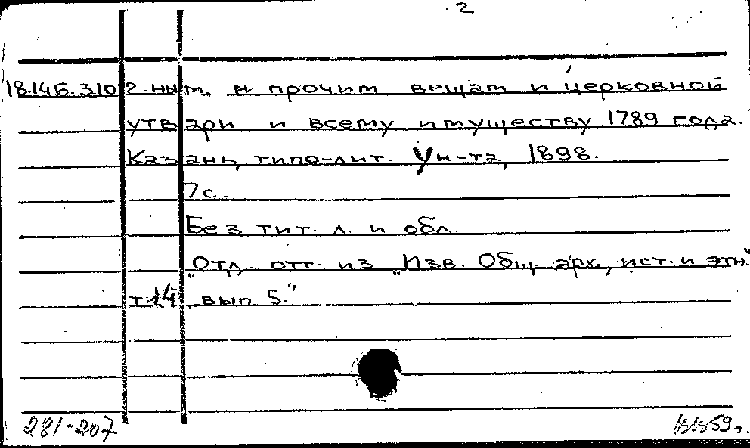 2
18.145.310 2. ным, и прочим вещам и церковной
утвари и всему имуществу 1789 года.
Казань, типо-лит. Ун-та, 1898.
7 с.
Без тит. л. и обл.
"Отд. отт. из "Изв. Общ. арх., ист. и этн."
т. 14 вып. 5."
281-207